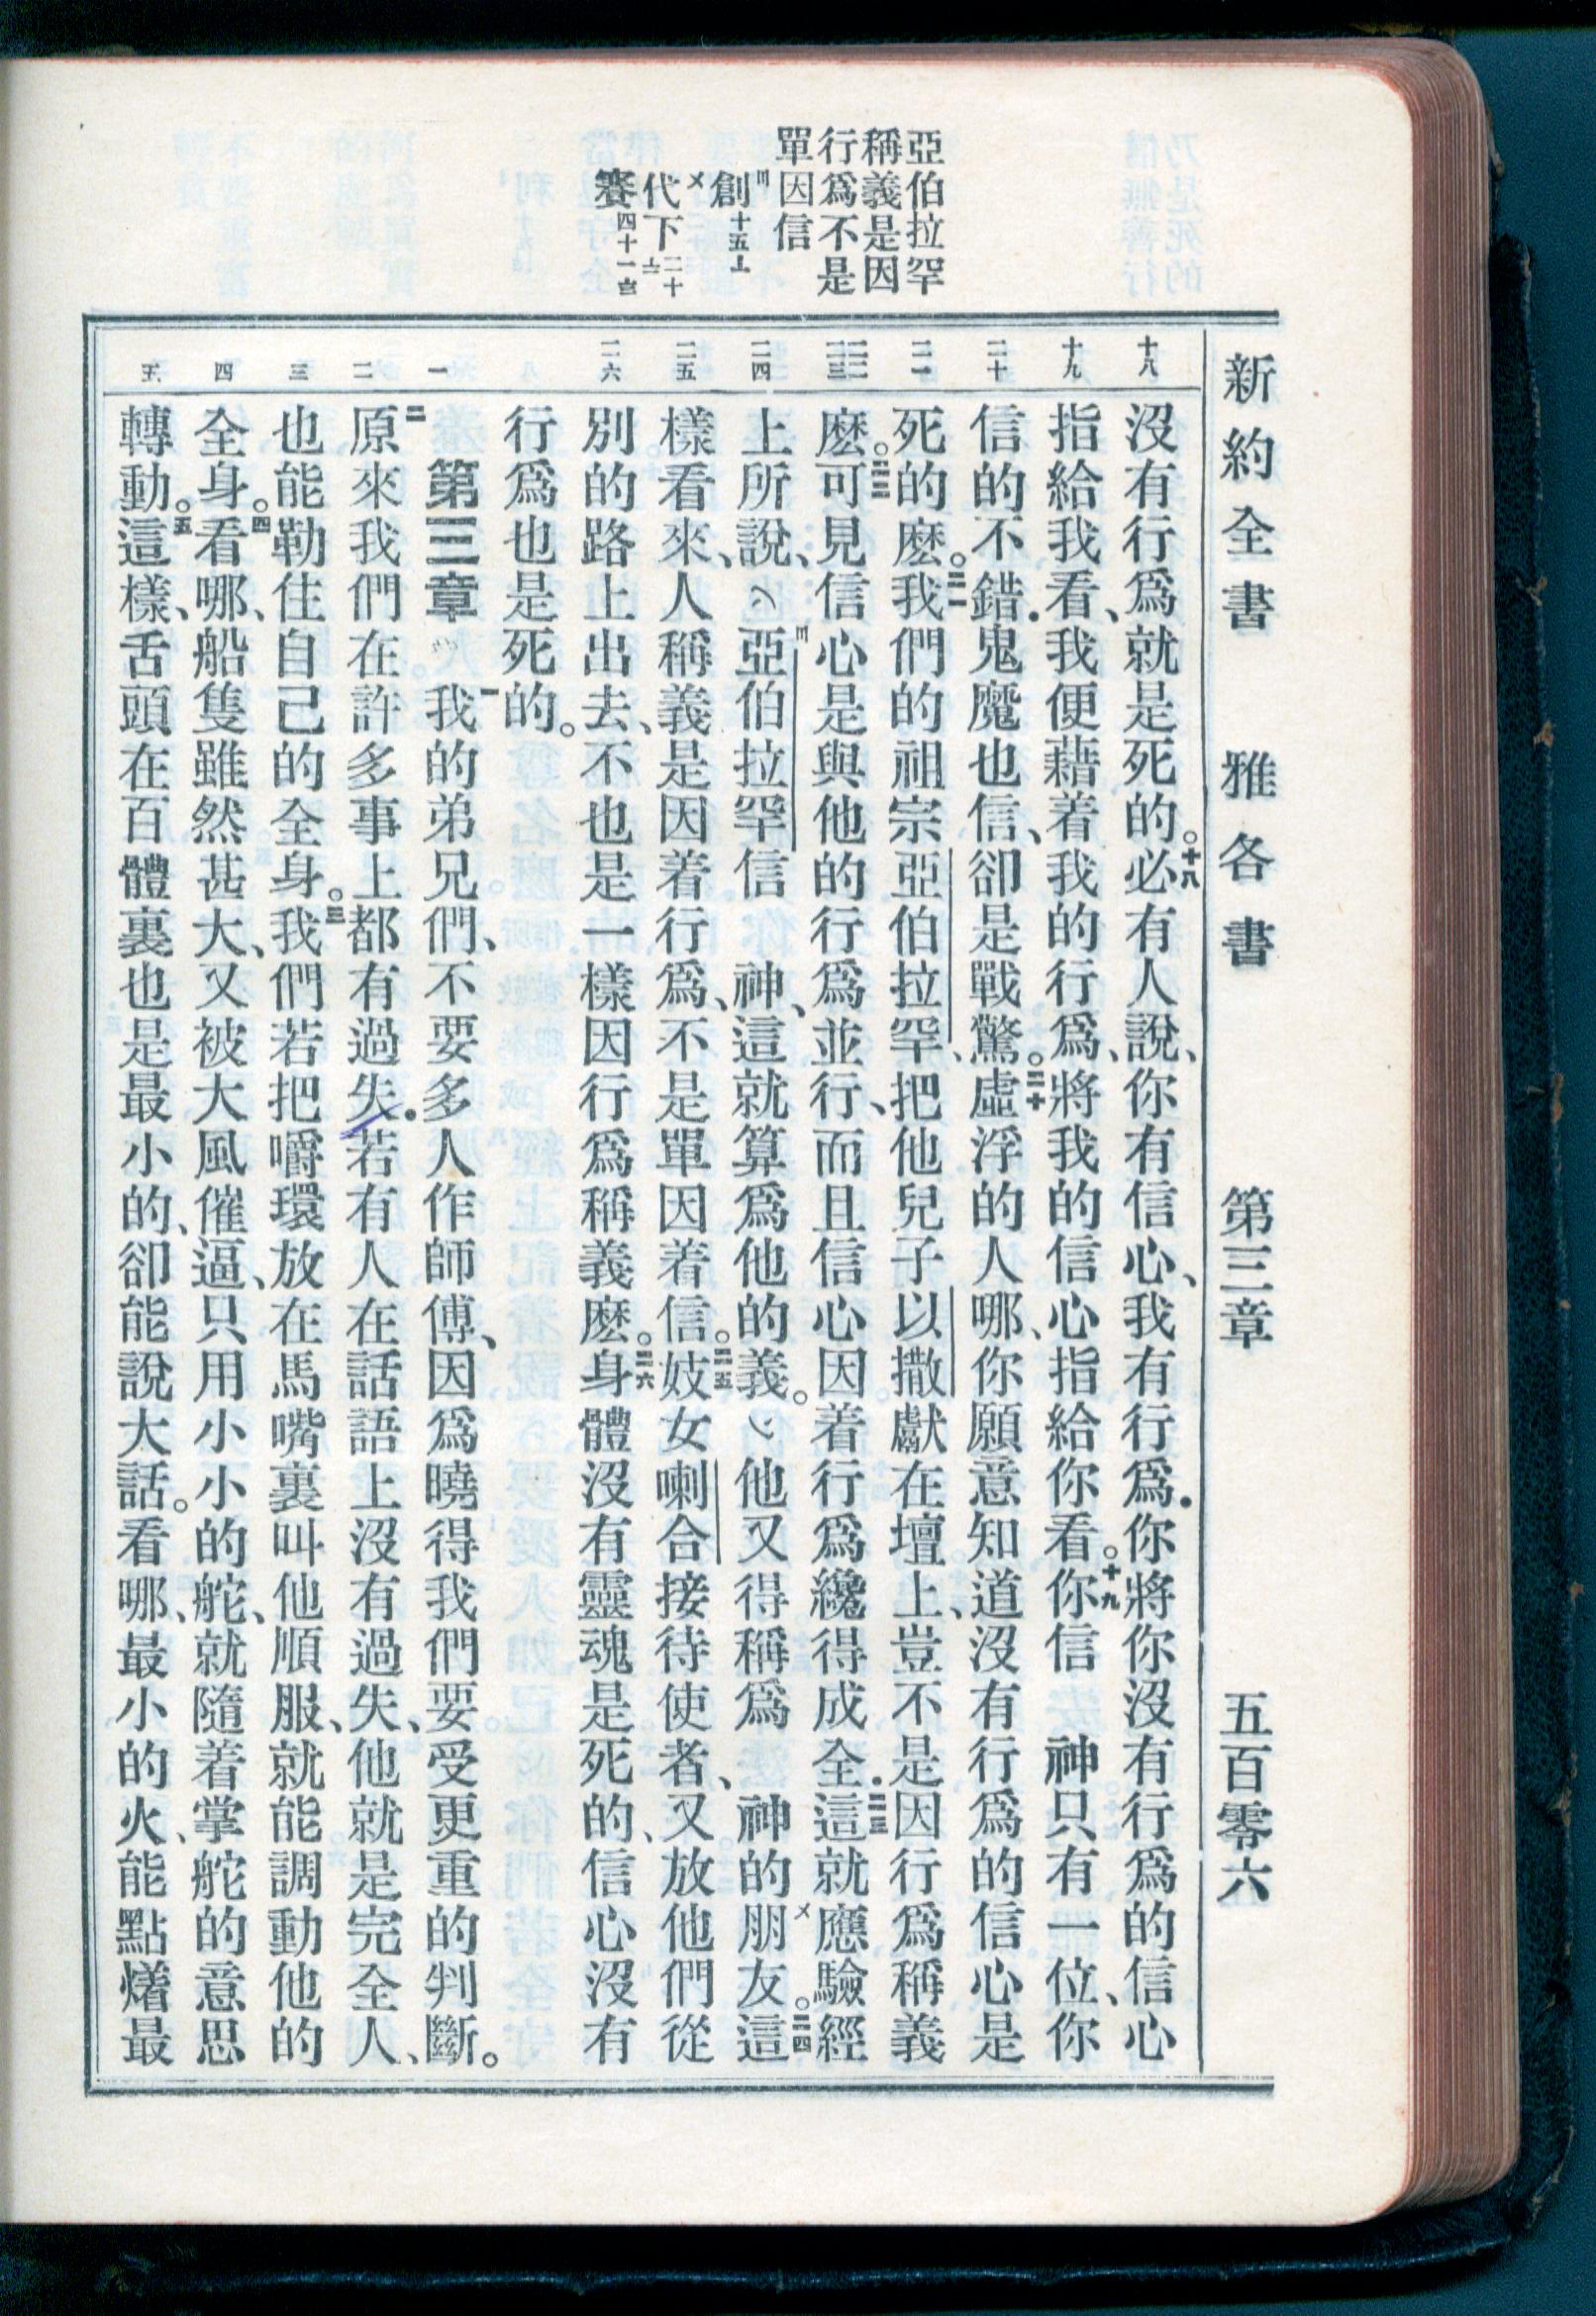 新約全書 雅各書 第三章 五百零六
亞伯拉罕
稱義是因
行爲不是
單因信
〣創十五6
〤代下二十7
賽四十一8
十八
十九
二十
二一
二二
二三
二四
二五
二六
一
二
三
四
五
沒有行爲就是死的。十八必有人說、你有信心、我有行爲．你將你沒有行爲的信心
指給我看、我便藉着我的行爲、將我的信心指給你看。十九你信 神只有一位、你
信的不錯．鬼魔也信、卻是戰驚。二十虛浮的人哪、你願意知道沒有行爲的信心是
死的麽。二一我們的祖宗亞伯拉罕、把他兒子以撒獻在壇上、豈不是因行爲稱義
麽。二二可見信心是與他的行爲並行、而且信心因着行爲纔得成全．二三這就應驗經
上所說、（〣亞伯拉罕信 神、這就算爲他的義。）他又得稱爲 神的〤朋友。二四這
樣看來、人稱義是因着行爲、不是單因着信。二五妓女喇合接待使者、又放他們從
別的路上出去、不也是一樣因行爲稱義麽。二六身體沒有靈魂是死的、信心沒有
行爲也是死的。
第三章 一我的弟兄們、不要多人作師傅、因爲曉得我們要受更重的判斷。
二原來我們在許多事上都有過失．若有人在話語上沒有過失、他就是完全人、
也能勒住自己的全身。三我們若把嚼環放在馬嘴裏叫他順服、就能調動他的
全身。四看哪、船隻雖然甚大、又被大風催逼、只用小小的舵、就隨着掌舵的意思
轉動。五這樣、舌頭在百體裏也是最小的、卻能說大話。看哪、最小的火、能點𤏸最